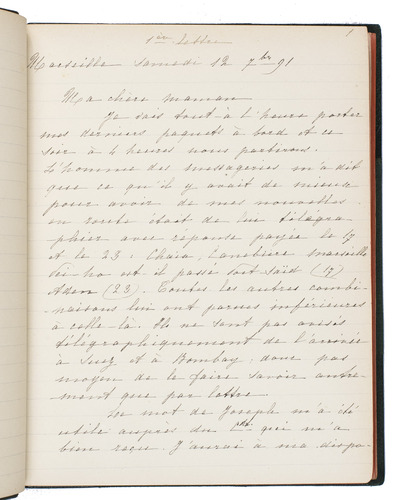 1
1ère lettre
Marseille Samedi 12 7bre 91
Ma chère maman
Je vais tout à l'heure porter
mes derniers paquets à bord et ce
soir à 4 heures nous partirons.
L'homme des messageries m'a dit
que ce qu'il y avait de mieux
pour avoir de mes nouvelles
en route était de lui télégra-
phier avec réponse payée le 17
et le 23 : Canebière Marseille
est il passé Port Saïd (17)
Aden (23). Toutes les autres combi-
naisons lui ont parues inférieures
à celle là. Ils ne sont pas avisés
télégraphiquement de l'arrivée
à Suez et à Bombay, donc pas
moyen de le faire savoir autre-
ment que par lettre.
Un mot de Joseph m'a été
utile auprès du Ct qui m'a
bien reçu. J'aurai à ma dispo-